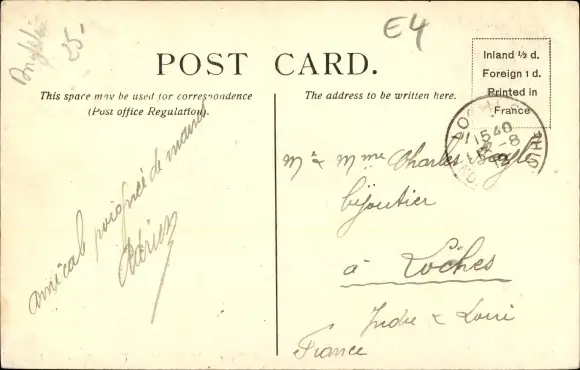 E4
25
POST CARD.
This space may be used for correspondence
(Post office Regulation).
The address to be written here.
Inland ½ d.
Foreign 1 d.
Printed in
France
LOCHES
1540
2-8
amicale poignée de mains
Adrien
Mr & Mme Charles
bijoutier
à Loches
Indre & Loire
France